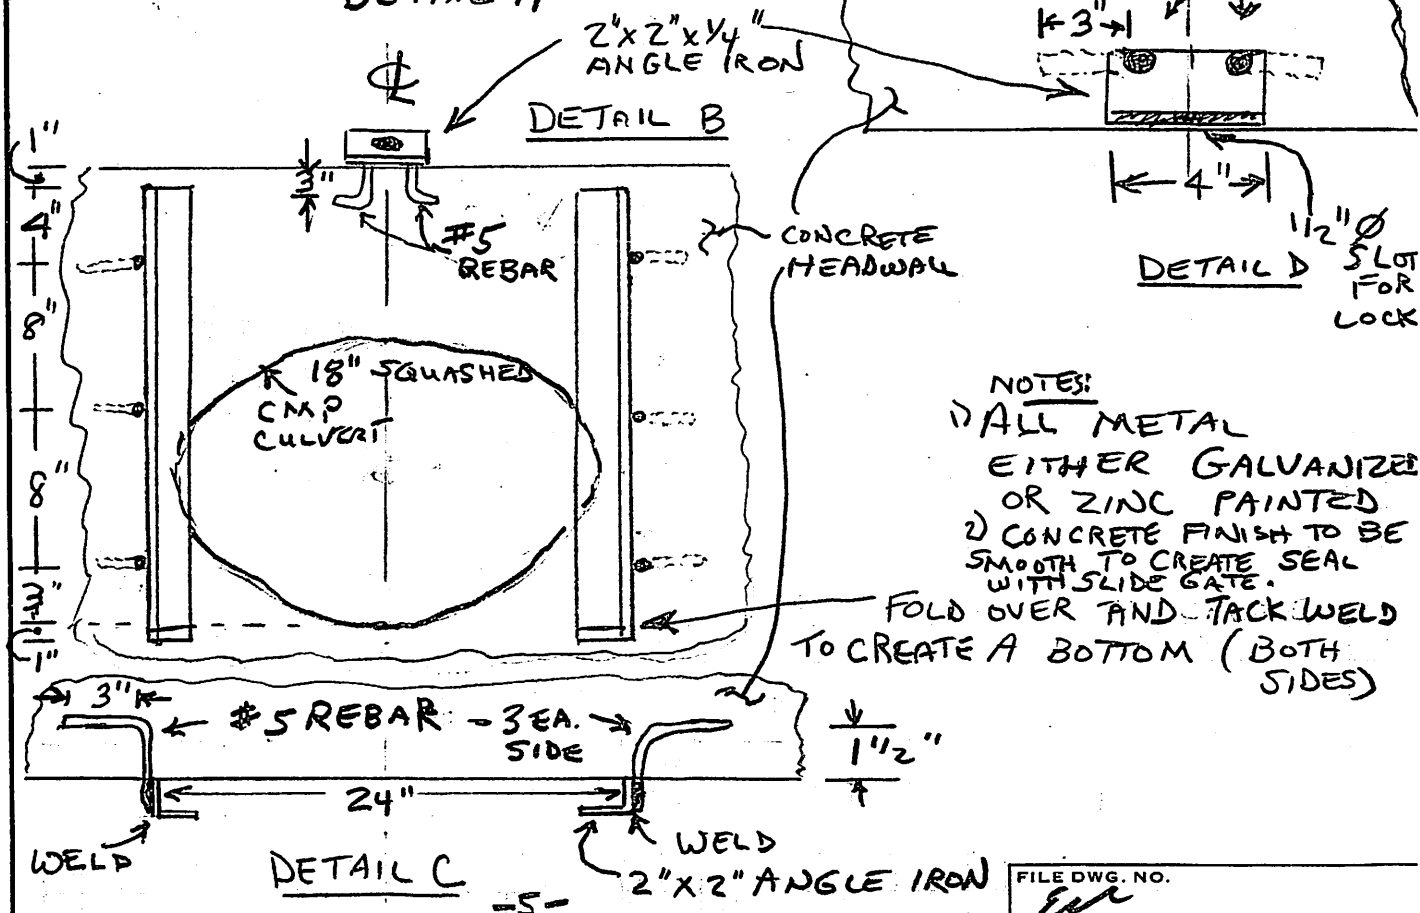 2" x 2" x 1/4"
ANGLE IRON
DETAIL B
3"
℄
1"
3"
4"
#5
REBAR
CONCRETE
HEADWALL
4"
1/2" Ø
SLOT
FOR
LOCK
DETAIL D
8"
18" SQUASHED
CMP
CULVERT
8"
3"
1"
NOTES:
1) ALL METAL
EITHER GALVANIZED
OR ZINC PAINTED
2) CONCRETE FINISH TO BE
SMOOTH TO CREATE SEAL
WITH SLIDE GATE.
FOLD OVER AND TACK WELD
TO CREATE A BOTTOM (BOTH
SIDES)
3"
#5 REBAR - 3 EA.
SIDE
1 1/2"
24"
WELD
WELD
DETAIL C
2" X 2" ANGLE IRON
-5-
FILE DWG. NO.